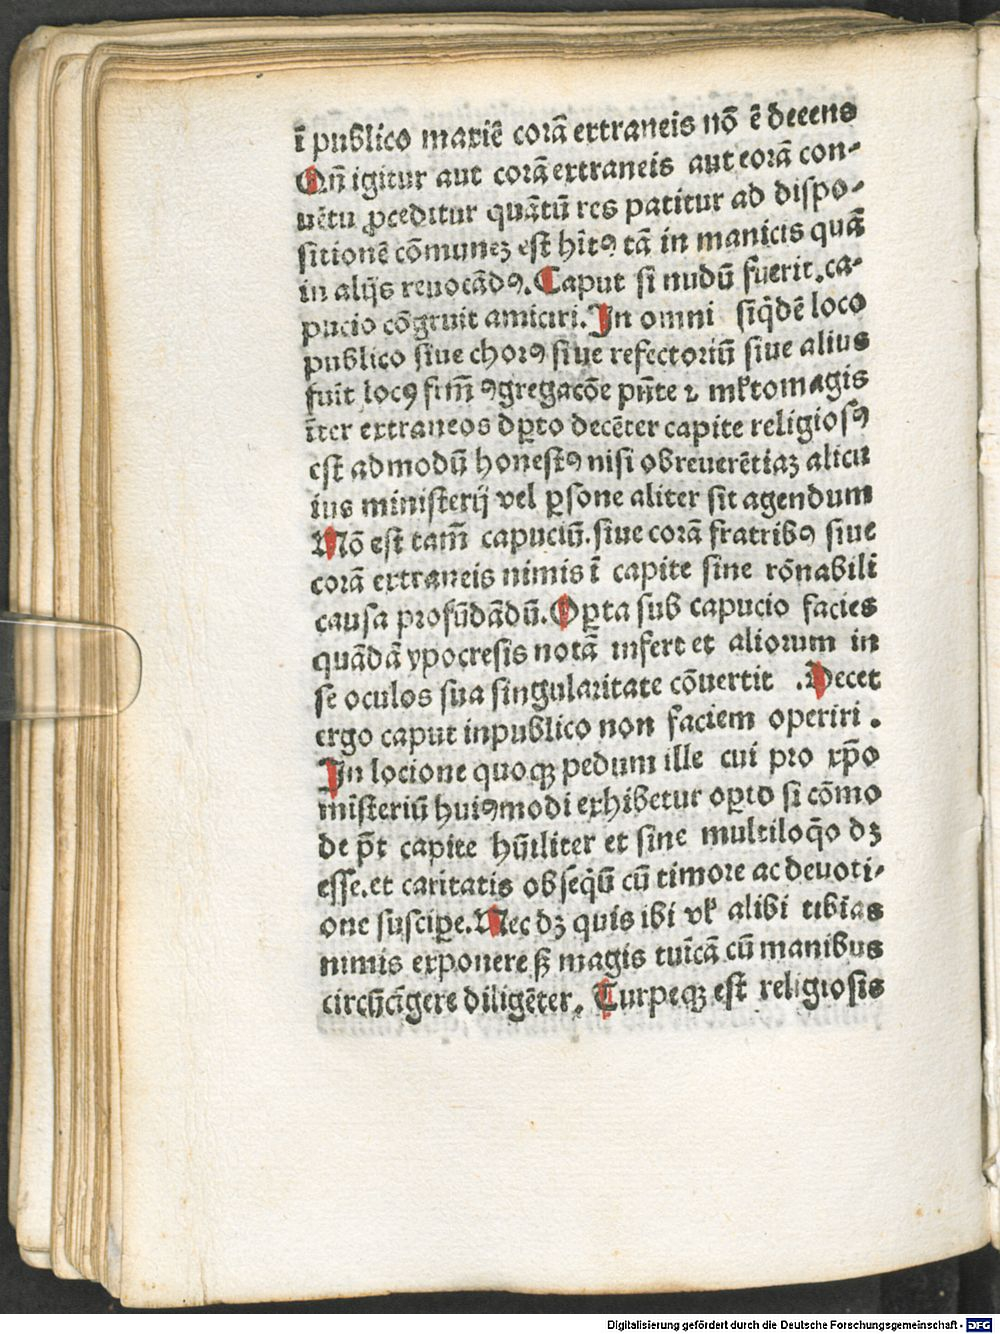 ī publico maxiē corā extraneis nō ē decens
Qn̄ igitur aut corā extraneis aut corā con-
uētu ꝓceditur quātū res patitur ad dispo-
sitionē cōmunez est hītꝰ tā in manicis quā
in alijs reuocādꝰ. Caput si nudū fuerit. ca-
pucio cōgruit amiciri. In omni siq̄dē loco
publico siue chorꝰ siue refectoriū siue alius
fuīt locꝰ fim̄ ꝯgregacōe pn̄te ⁊ ml̄tomagis
īter extraneos dꝑto decēter capite religiosꝰ
est admodū honestꝰ nisi obreuerētiaz alicu
ius ministerij vel ꝑsone aliter sit agendum
Nō est tam̄ capuciū. siue corā fratribꝰ siue
corā extraneis nimis ī capite sine rōnabili
causa profūdādū. Oꝑta sub capucio facies
quādā ypocresis notā infert et aliorum in
se oculos sua singularitate cōuertit . Decet
ergo caput inpublico non faciem operiri .
In locione quoqꝫ pedum ille cui pro xp̄o
misteriū huiꝰmodi exhibetur oꝑto si cōmo
de p̄t capite hūiliter et sine multiloq̄o dꝫ
esse. et caritatis obseq̄ū cū timore ac deuoti-
one susciꝑe. Nec dꝫ quis ibi vl̄ alibi tibīas
nimis exponere sꝫ magis tuīcā cū manibus
circūcīgere diligēter. Turpeqꝫ est religiosis
Digitalisierung gefördert durch die Deutsche Forschungsgemeinschaft - DFG